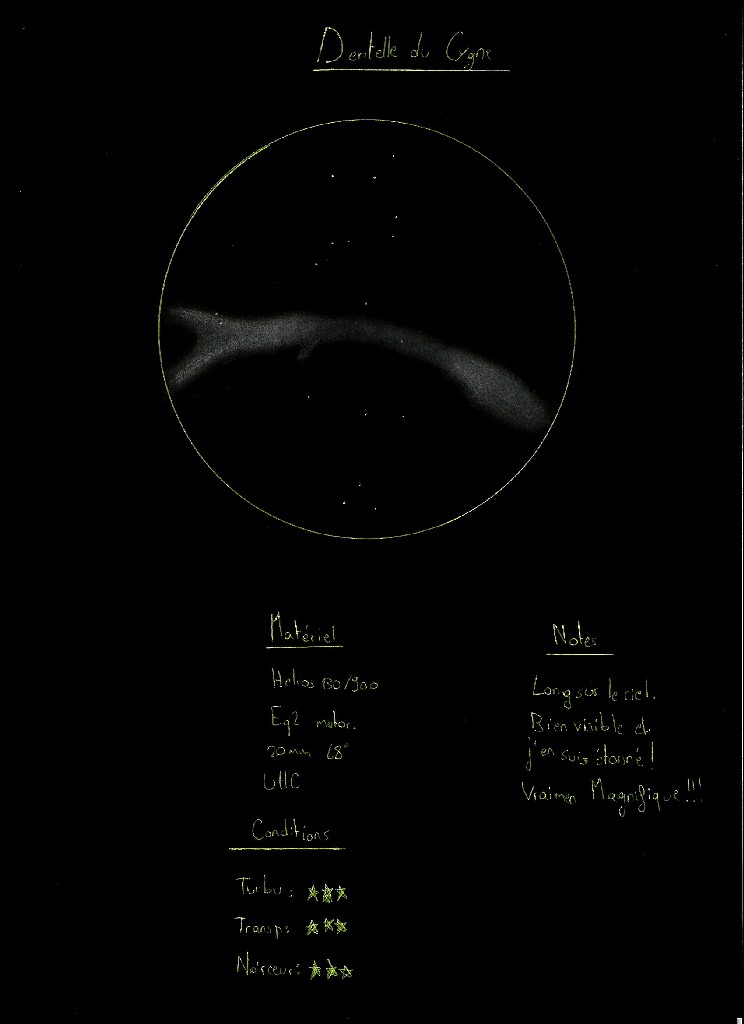 Dentelle du Cygne
Matériel
Helios 130/900
Eq2 motor.
20mm 68°
Notes
Long sur le ciel.
Bien visible et
j'en suis étonné!
Vraimen Magnifique!!!
Conditions
Turbu: ★★★
Transp: ★★★
Noirceur: ★★★